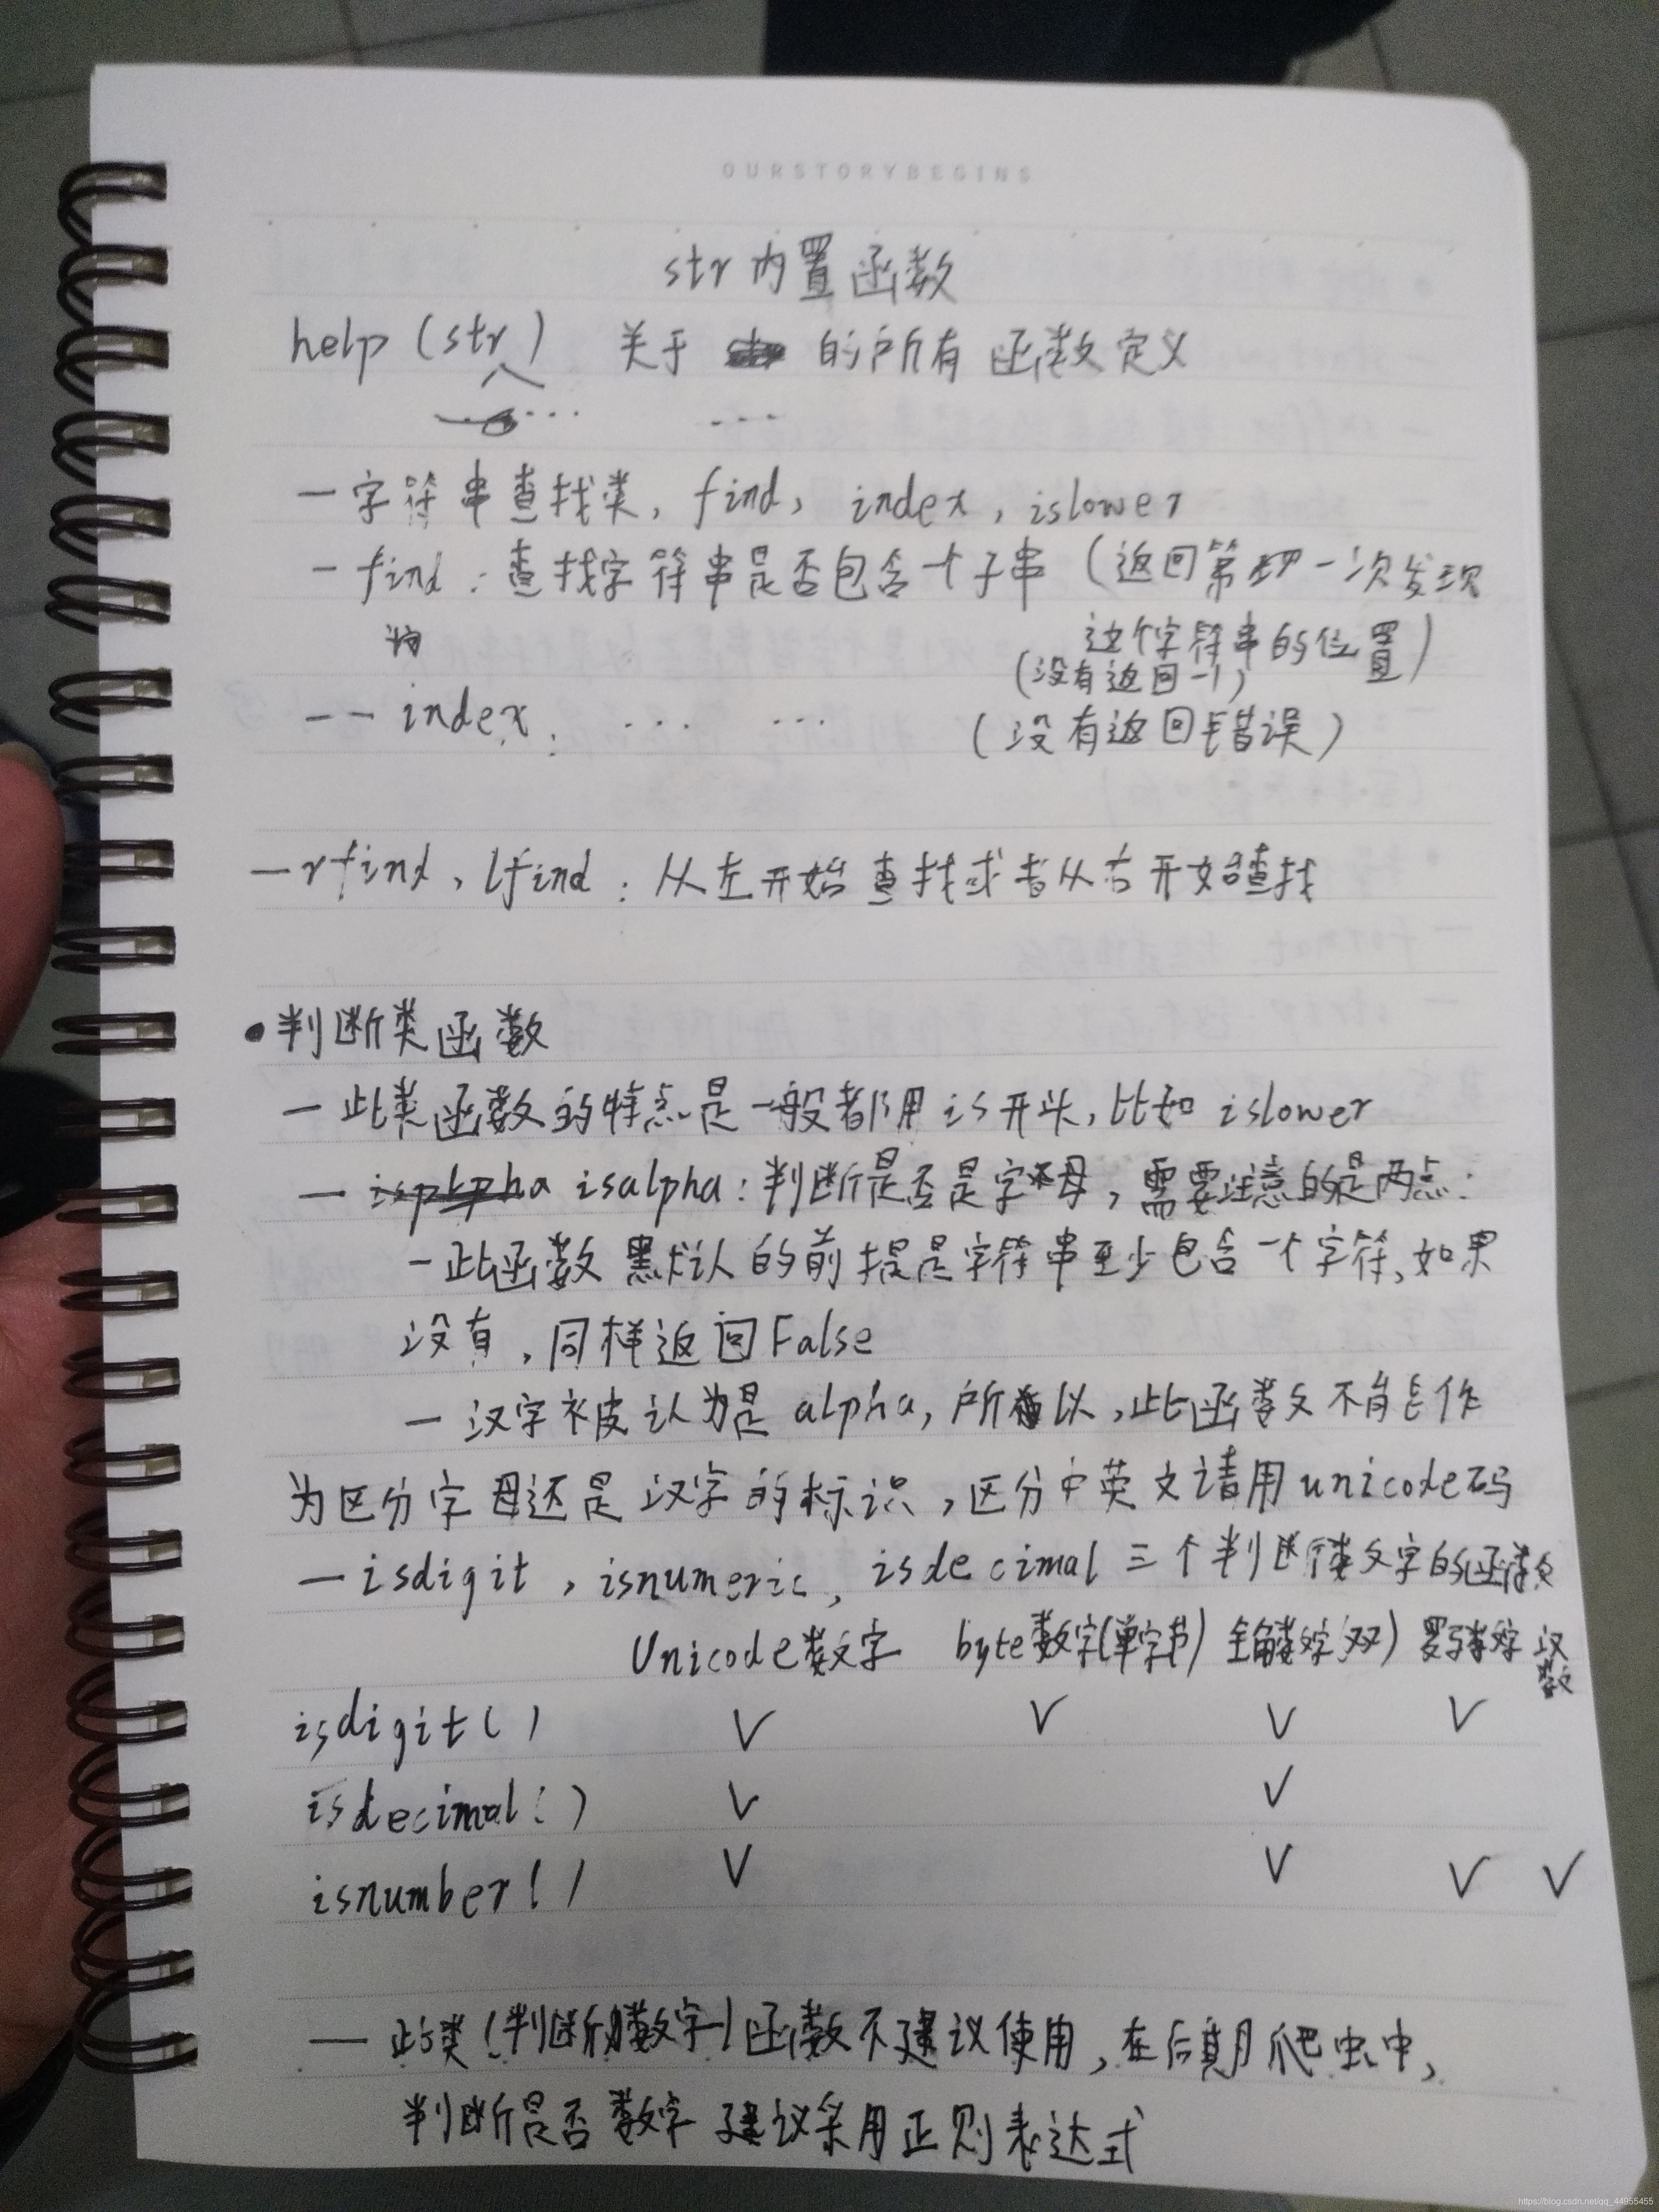 OURSTORYBEGINS
str内置函数
help (str) 关于 的所有函数定义
... ...
—字符串查找类, find, index, islower
—find: 查找字符串是否包含一个子串 (返回第一次发现
这个字符串的位置)
(没有返回-1)
—— index: ... ... (没有返回错误)
—rfind, lfind: 从左开始查找或者从右开始查找
•判断类函数
—此类函数的特点是一般都用is开头, 比如 islower
— isalpha: 判断是否是字母, 需要注意的是两点:
—此函数默认的前提是字符串至少包含一个字符, 如果
没有, 同样返回False
—汉字被认为是alpha, 所以, 此函数不能作
为区分字母还是汉字的标识, 区分中英文请用unicode码
—isdigit, isnumeric, isdecimal 三个判断数字的函数
Unicode数字 byte数字(单字节) 全角数字(双) 罗马数字 汉数
isdigit() √ √ √ √
isdecimal() √ √
isnumber() √ √ √ √
— 此类(判断数字)函数不建议使用, 在后期爬虫中,
判断是否数字建议采用正则表达式
https://blog.csdn.net/qq_44955455